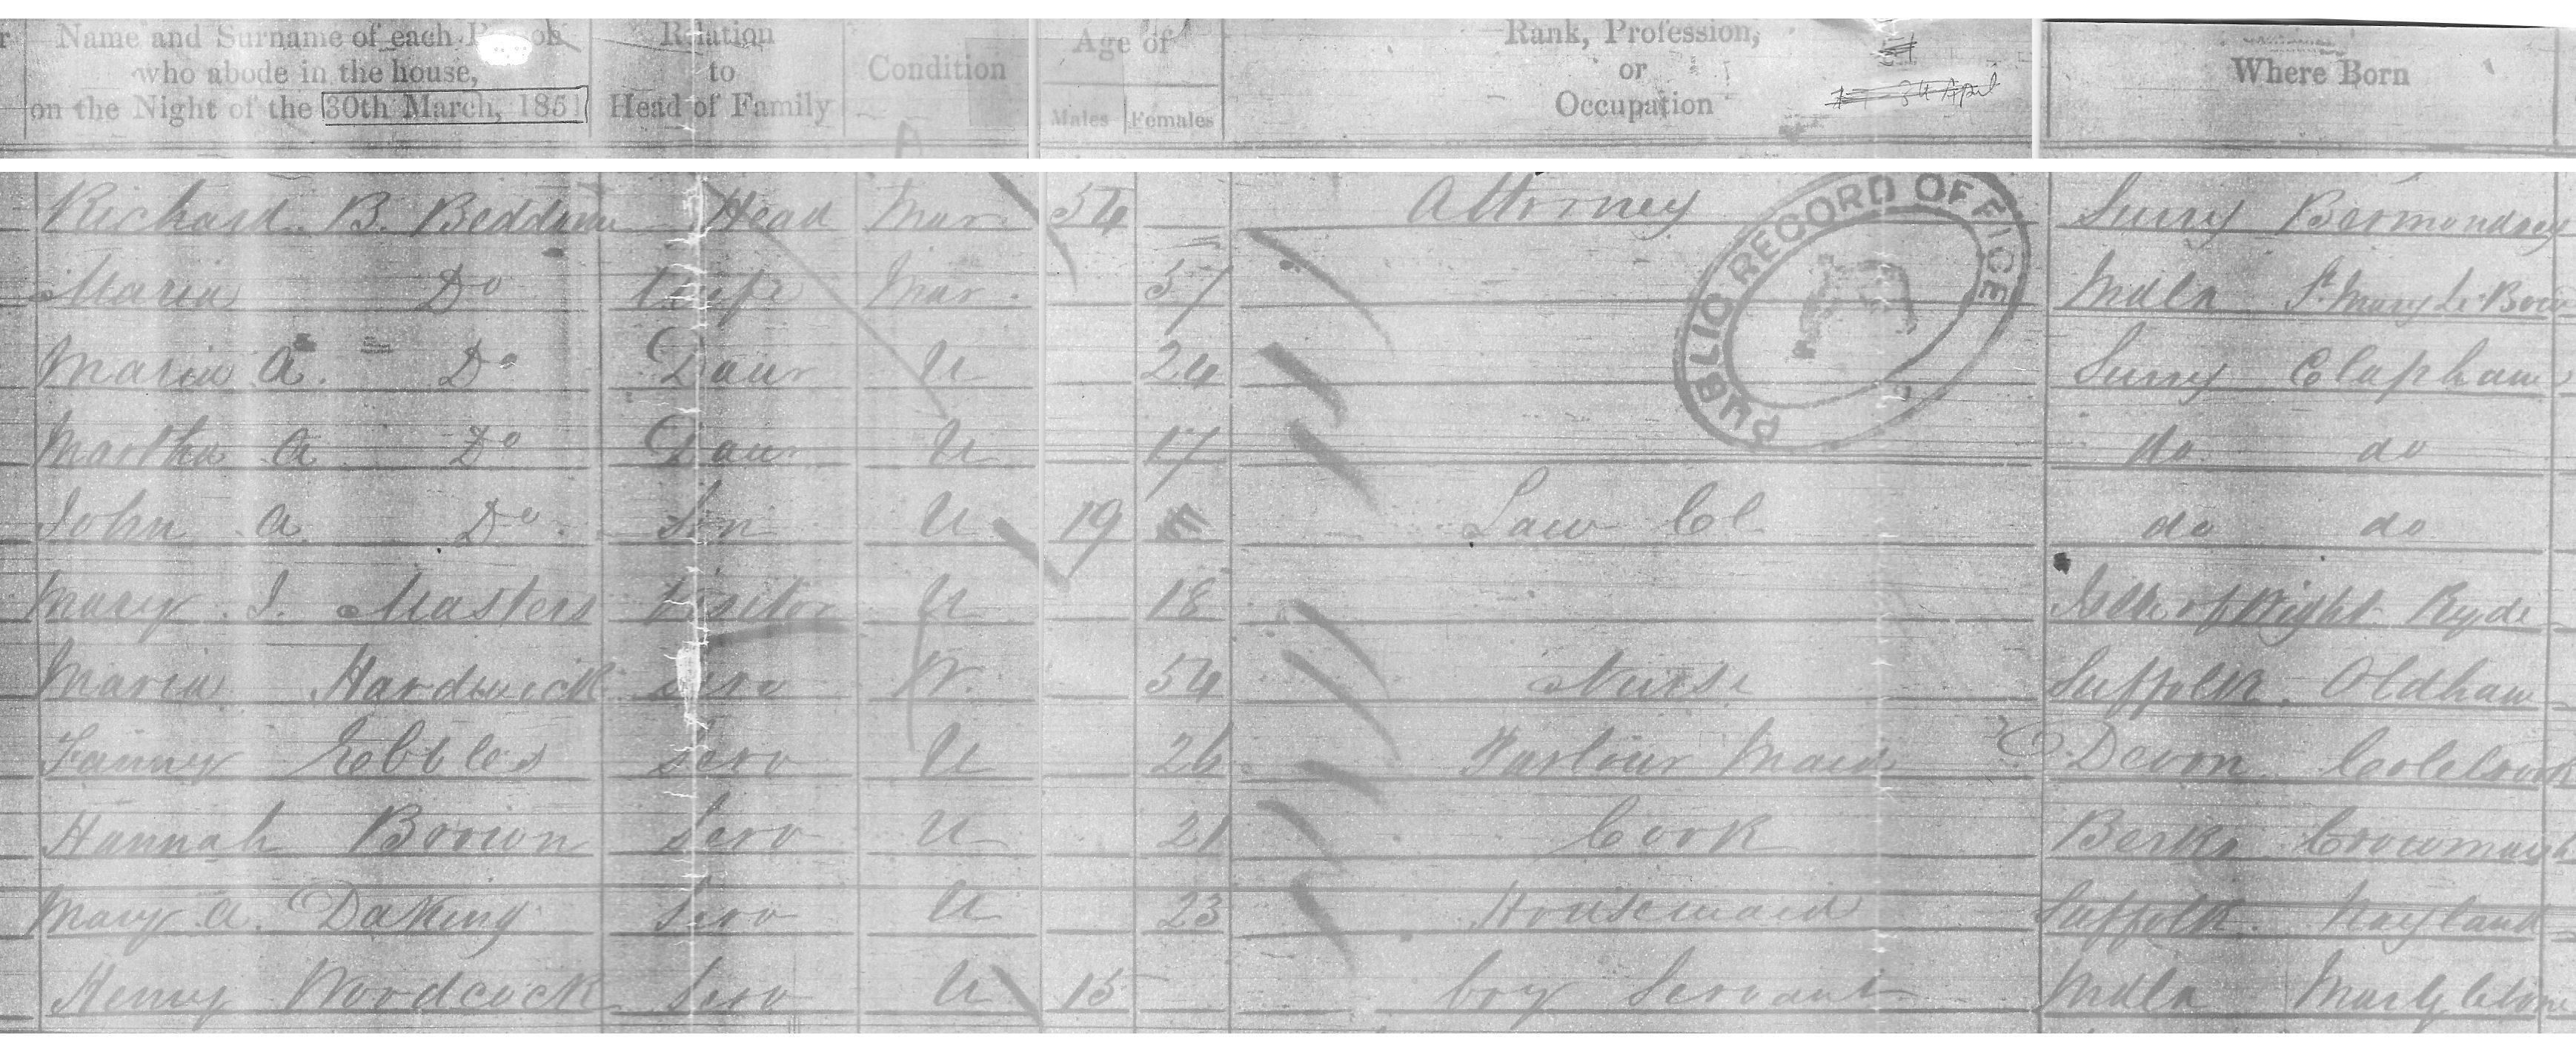 Name and Surname of each Person Relation Condition Age of Rank, Profession, Where Born
who abode in the house, to or
on the Night of the 30th March, 1851 Head of Family Males Females Occupation 8th April
Richard B. Beddome Head Mar. 54 Attorney Surry Bermondsey
Maria Do Wife Mar. 57 Mdlx St. Mary Le Bow
Maria A. Do Daur U 24 Surry Clapham
Martha A Do Daur U 17 do do
John A Do Son U 19 Law Cl do do
Mary J. Masters Visitor U 18 Isle of Wight Ryde
Maria Hardwick Serv W. 54 Nurse Suffolk Oldham
Fanny Serv U 26 Parlour Maid Devon Colebrook
Hannah Brown Serv U 21 Cook Berks
Mary A. Daking Serv U 23 Housemaid Suffolk Nayland
Henry Woodcock Serv U 15 boy Servant Mdlx Marylebone
PUBLIC RECORD OFFICE